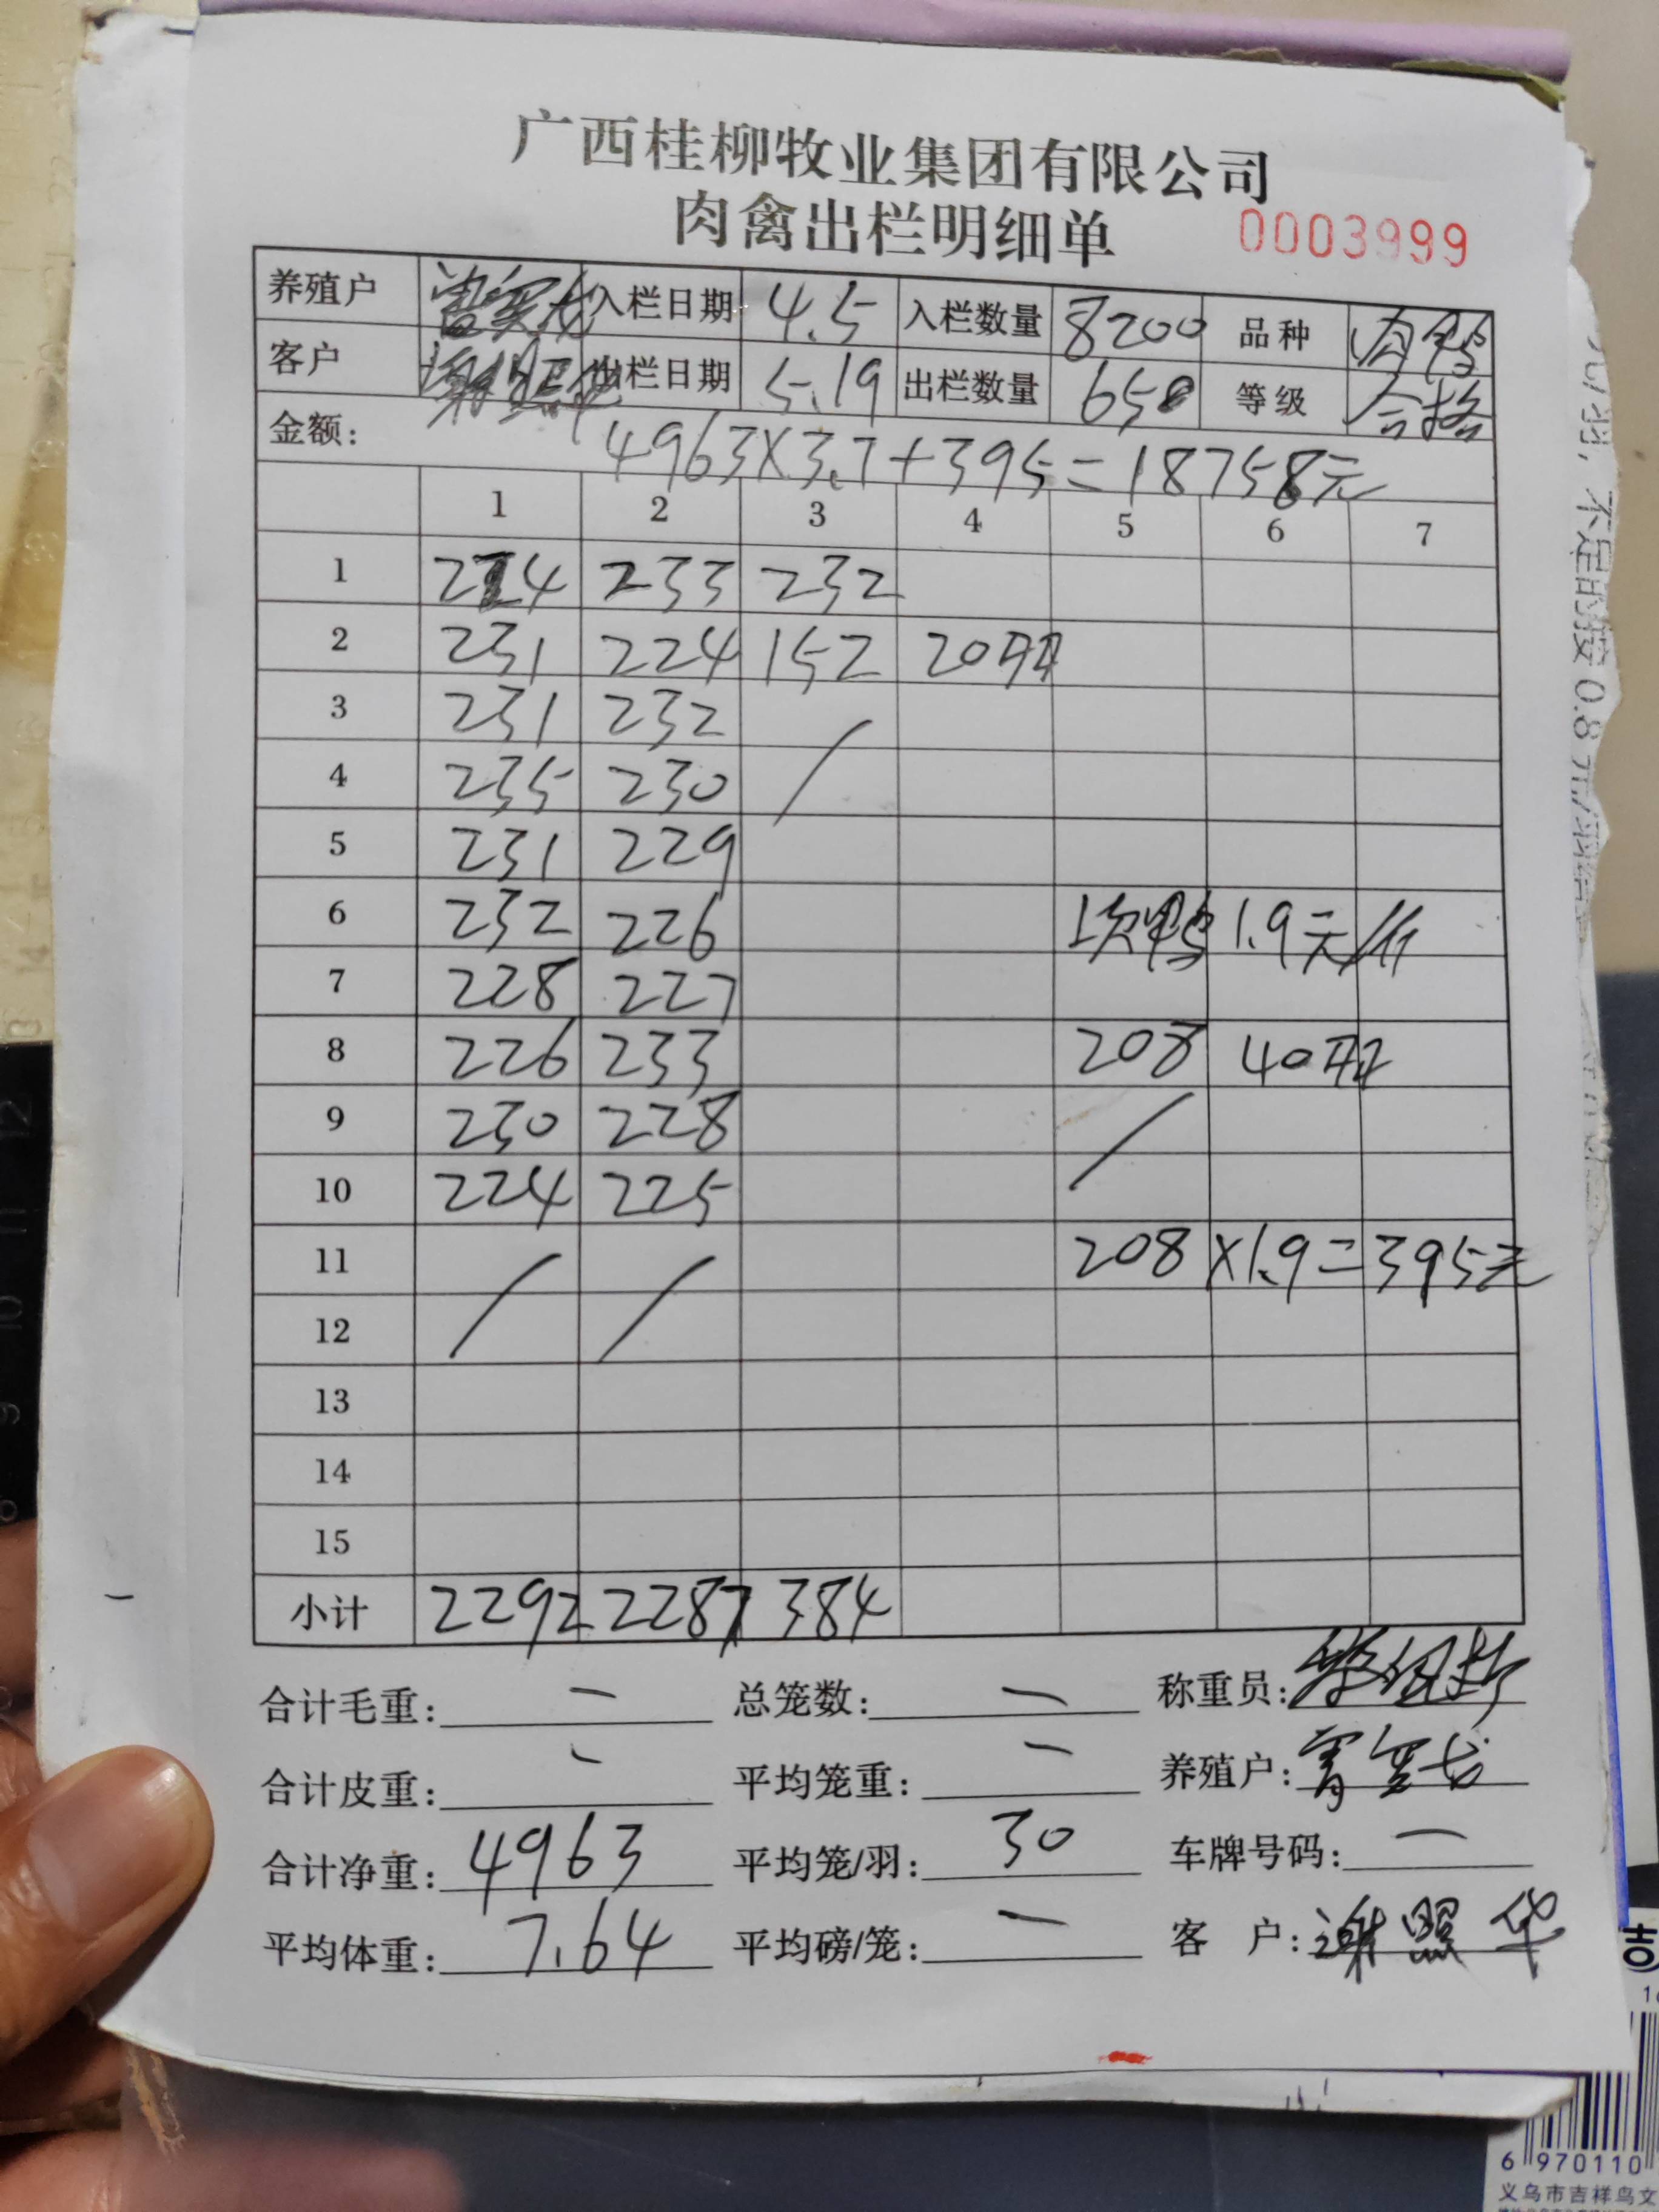 广西桂柳牧业集团有限公司
肉禽出栏明细单 0003999
养殖户 入栏日期 4.5 入栏数量 8200 品种 肉鸭
客户 谢照华 出栏日期 5.19 出栏数量 650 等级 合格
金额: 4963×3.7+395=18758元
1 2 3 4 5 6 7
1 224 233 232
2 231 224 152 20只
3 231 232 /
4 235 230
5 231 229
6 232 226 次鸭 1.9元/斤
7 228 227
8 226 233 208 40只
9 230 228 /
10 224 225
11 / / 208×1.9=395元
12
13
14
15
小计 2292 2287 384
合计毛重: — 总笼数: — 称重员:
合计皮重: — 平均笼重: — 养殖户:
合计净重: 4963 平均笼/羽: 30 车牌号码: —
平均体重: 7.64 平均磅/笼: — 客 户: 谢照华
不足的按0.8元/羽
6 970110
义乌市吉祥鸟文